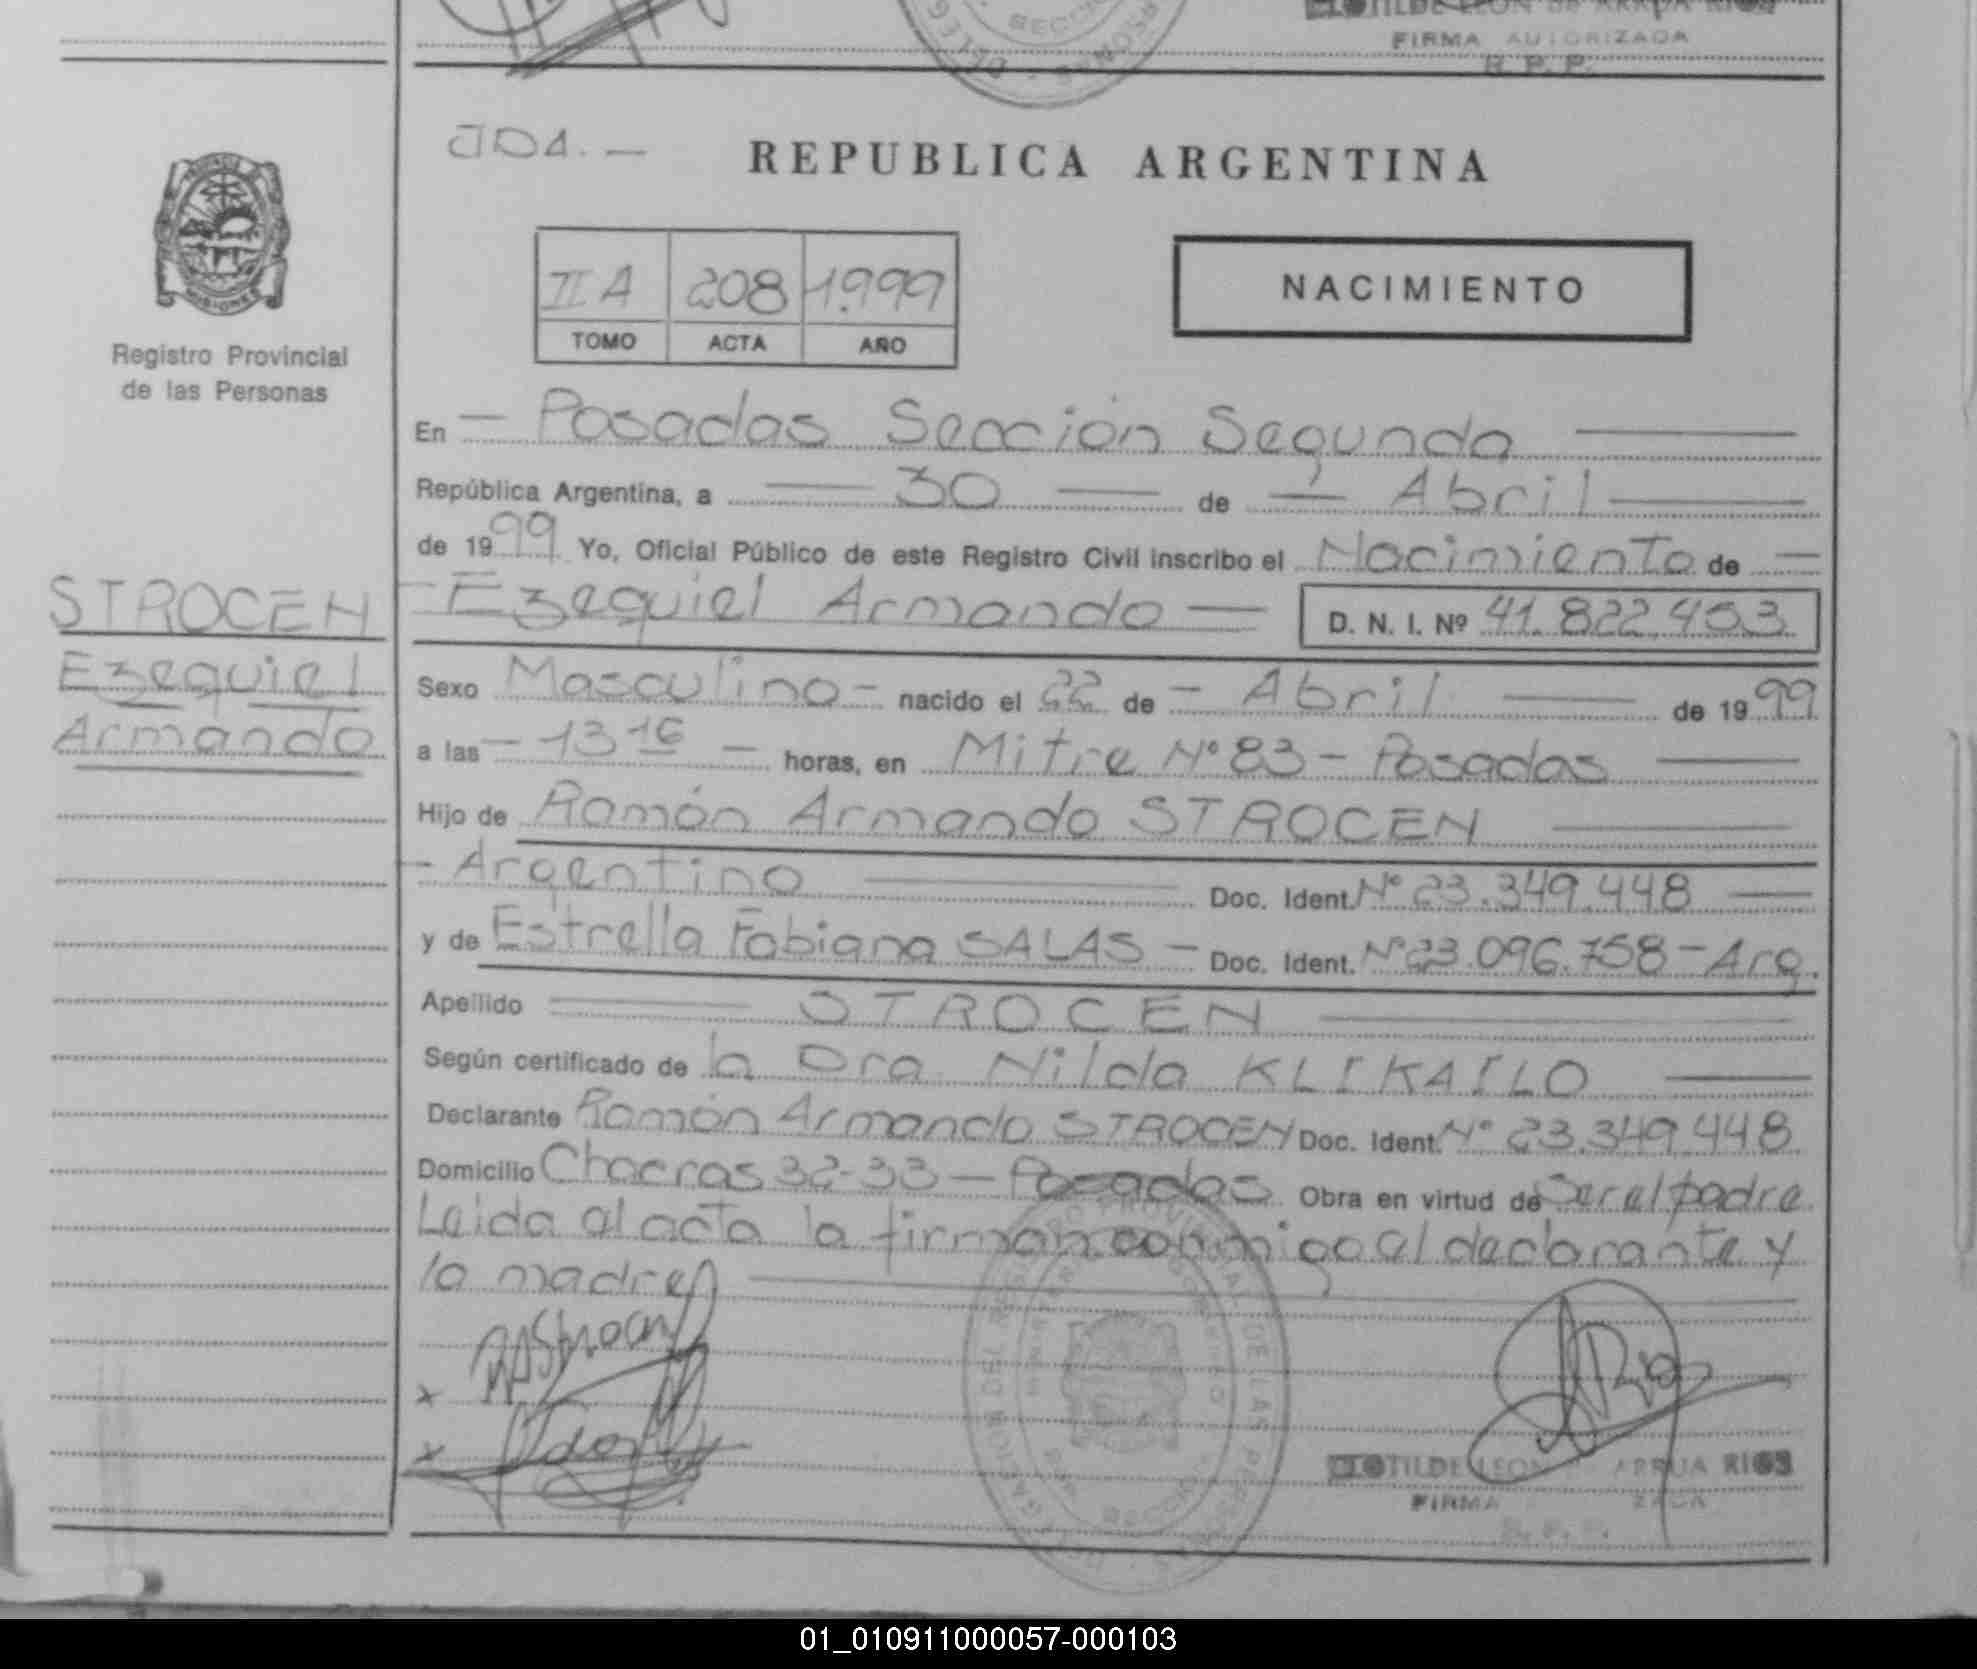 CLOTILDE LEON DE ARRUA RIOS
FIRMA AUTORIZADA
R. P. P.
JDA. —
REPUBLICA ARGENTINA
II A 208 1.999
TOMO ACTA AÑO
NACIMIENTO
MISIONES
Registro Provincial
de las Personas
En — Posadas Sección Segunda —
República Argentina, a — 30 — de — Abril —
de 1999 Yo, Oficial Público de este Registro Civil inscribo el Nacimiento de —
— Ezequiel Armando — D. N. I. Nº 41.822.453
STROCEN
Ezequiel
Armando
Sexo Masculino — nacido el 22 de — Abril — de 1999
a las — 13 16 — horas, en Mitre Nº 83 — Posadas —
Hijo de Ramón Armando STROCEN —
— Argentino — Doc. Ident. Nº 23.349.448 —
y de Estrella Fabiana SALAS — Doc. Ident. Nº 23.096.758 — Arg.
Apellido — STROCEN —
Según certificado de la Dra. Nilda KLIKAILO —
Declarante Ramón Armando STROCEN Doc. Ident. Nº 23.349.448
Domicilio Chacras 32-33 — Posadas Obra en virtud de Ser el padre
Leida el acta la firman conmigo el declarante y
la madre —
x
x
CLOTILDE LEON ARRUA RIOS
FIRMA
R. P. P.
01_010911000057-000103